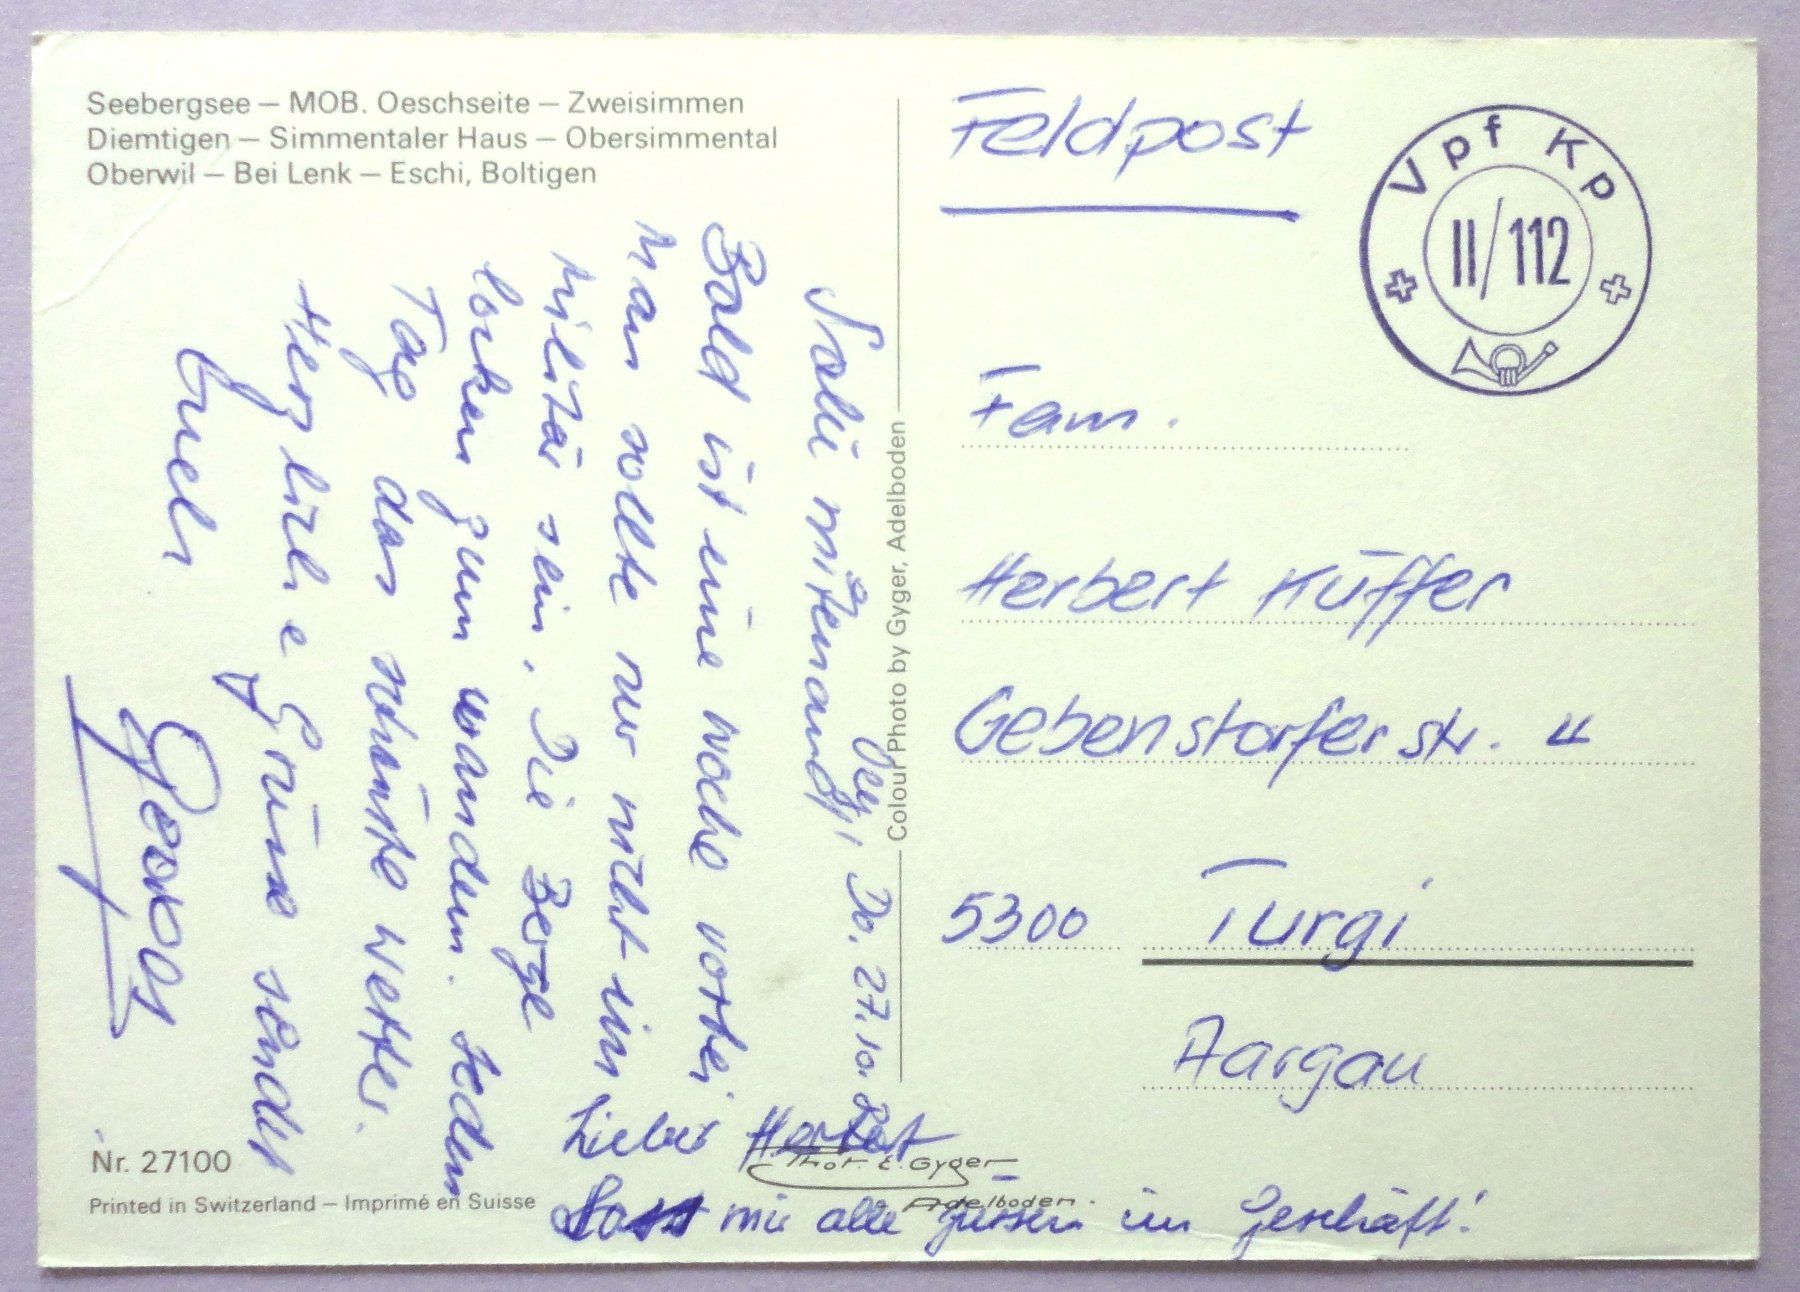 Seebergsee – MOB. Oeschseite – Zweisimmen
Diemtigen – Simmentaler Haus – Obersimmental
Oberwil – Bei Lenk – Eschi, Boltigen
Do. 27.10.
Salü mitenand,
Bald ist eine Woche vorbei
Man sollte nur nicht im
Militär sein. Die Berge
locken zum wandern. Jeden
Tag das schönste Wetter.
Herzliche Grüsse sendet
Euch
Lieber Herbert
Lass mir alle grüssen im Geschäft!
Nr. 27100
Printed in Switzerland – Imprimé en Suisse
Colour Photo by Gyger, Adelboden
Phot. E. Gyger
Adelboden.
Feldpost
Vpf Kp
II/112
Fam.
Herbert Küffer
Gebenstorferstr.
5300 Turgi
Aargau